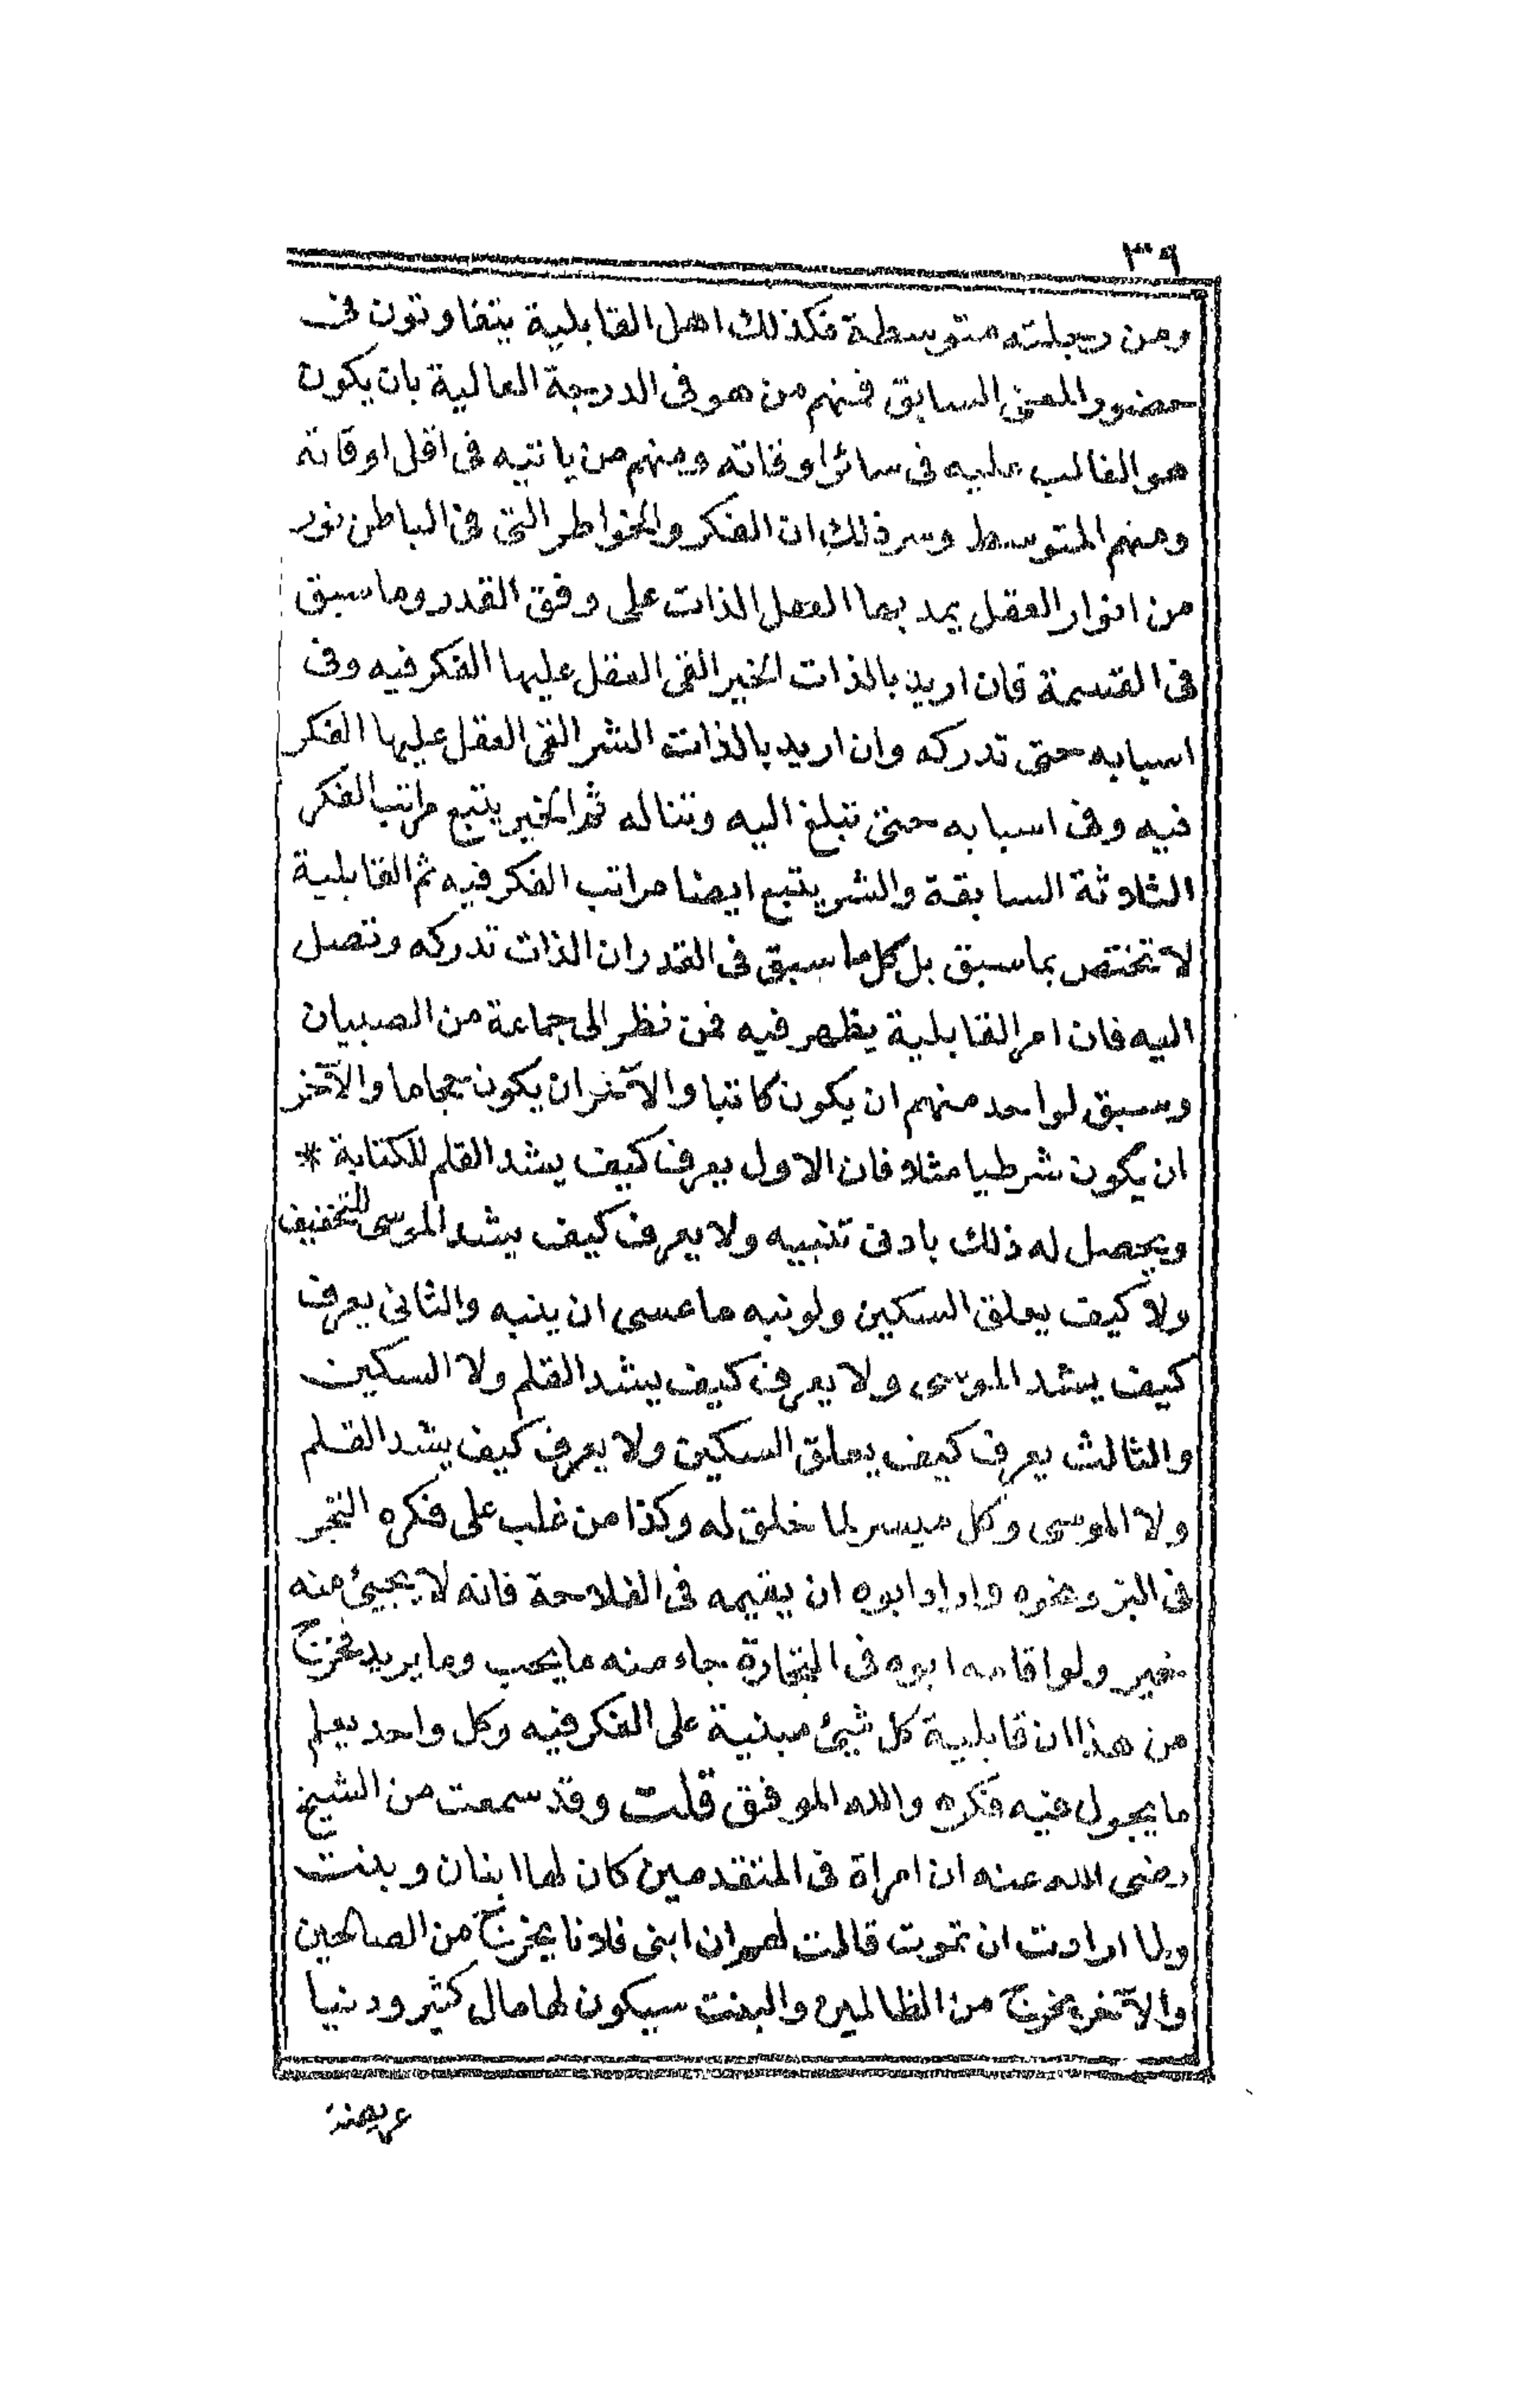 ٣٩
ومن رجلته متوسطة فكذلك اهل القابلية يتفاوتون فى
حضور المعنى السابق فمنهم من هو فى الدرجة العالية بان يكون
هو الغالب عليه فى سائر اوقاته ومنهم من ياتيه فى اقل اوقاته
ومنهم المتوسط وسر ذلك ان الفكر والخواطر التى فى الباطن نور
من انوار العقل يمد بها العقل الذات على وفق القدر وما سبق
فى القسمة فان اريد بالذات الخير القى العقل عليها الفكر فيه وفى
اسبابه حتى تدركه وان اريد بالذات الشر القى العقل عليها الفكر
فيه وفى اسبابه حتى تبلغ اليه وتناله ثم الخير يتبع مراتب الفكر
الثلاثة السابقة والشر يتبع ايضا مراتب الفكر فيه ثم القابلية
لا تختص بما سبق بل كل ما سبق فى القدر ان الذات تدركه وتصل
اليه فان امر القابلية يظهر فيه فمن نظر الى جماعة من الصبيان
وسبق لواحد منهم ان يكون كاتبا والآخر ان يكون حجاما والآخر
ان يكون شرطيا مثلا فان الاول يعرف كيف يشد القلم للكتابة *
ويحصل له ذلك بادنى تنبيه ولا يعرف كيف يشد الموسى للتخفيف
ولا كيف يعلق السكين ولو نبه ما عسى ان ينبه والثانى يعرف
كيف يشد الموسى ولا يعرف كيف يشد القلم ولا السكين
والثالث يعرف كيف يعلق السكين ولا يعرف كيف يشد القلم
ولا الموسى وكل ميسر لما خلق له وكذا من غلب على فكره التجر
فى البز ونحوه واراد ابوه ان يقيمه فى الفلاحة فانه لا يجيئ منه
خير ولو اقامه ابوه فى التجارة جاء منه ما يحب وما يريد فخرج
من هذا ان قابلية كل شيئ مبنية على الفكر فيه وكل واحد يعلم
ما يجول فيه فكره والله الموفق قلت وقد سمعت من الشيخ
رضى الله عنه ان امراة فى المتقدمين كان لها ابنان وبنت
ولما ارادت ان تموت قالت لهم ان ابنى فلانا يخرج من الصالحين
والآخر يخرج من الظالمين والبنت سيكون لها مال كثير ودنيا
عريضة